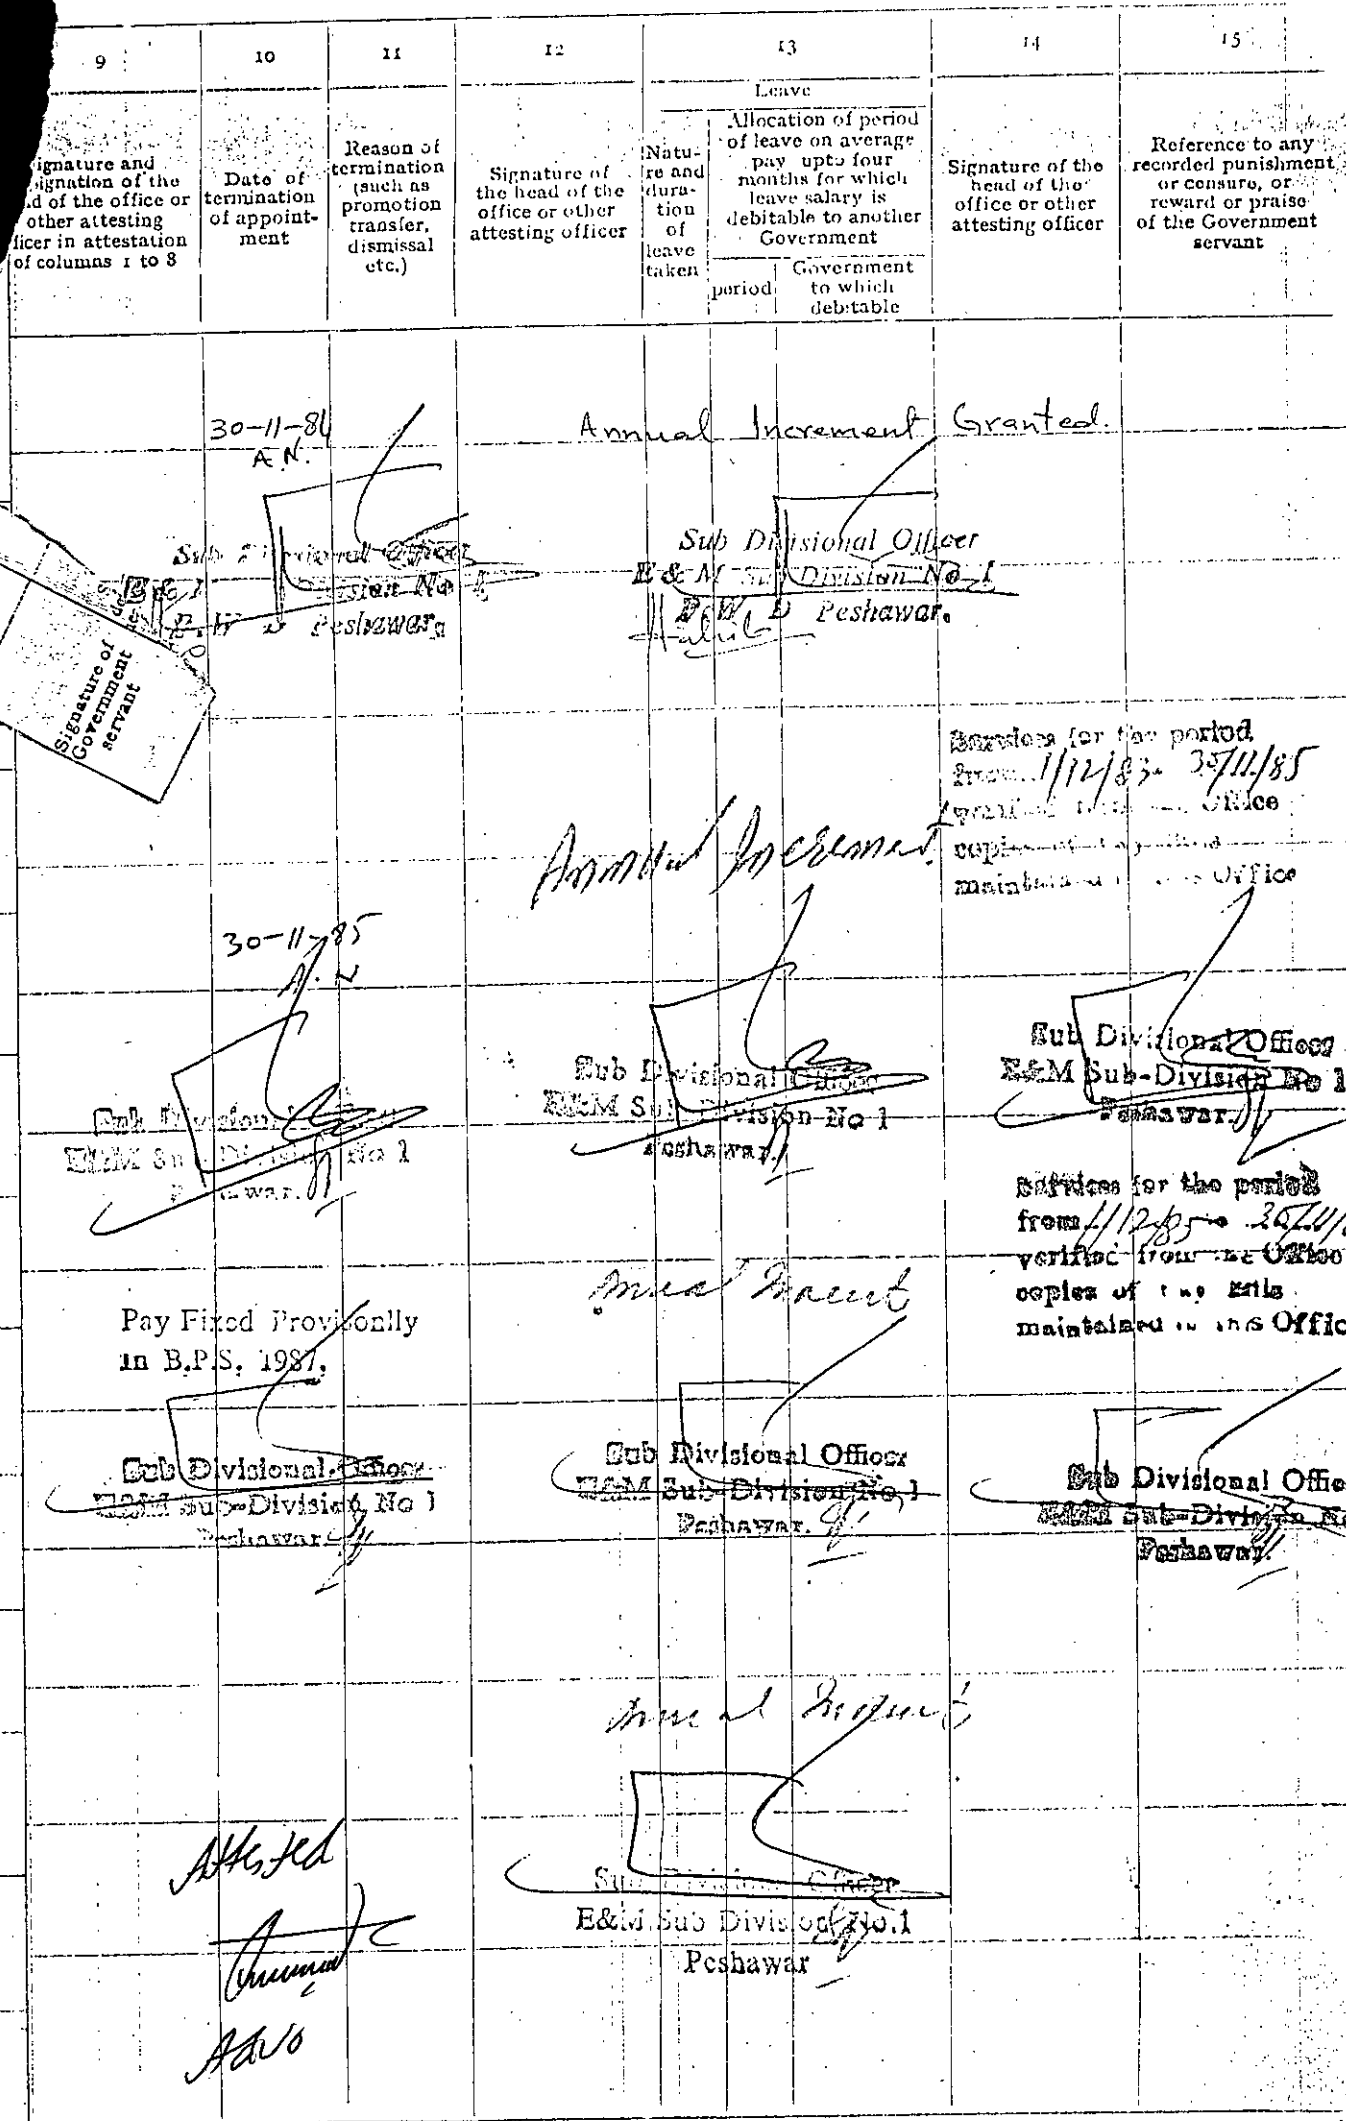 9 10 11 12 13 14 15
Leave
ignature and
ignation of the
d of the office or
other attesting
ficer in attestation
of columns 1 to 8
Date of
termination
of appoint-
ment
Reason of
termination
(such as
promotion
transfer,
dismissal
etc.)
Signature of
the head of the
office or other
attesting officer
Natu-
re and
dura-
tion
of
leave
taken
Allocation of period
of leave on average
pay upto four
months for which
leave salary is
debitable to another
Government
period
Government
to which
debitable
Signature of the
head of the
office or other
attesting officer
Reference to any
recorded punishment
or censure, or
reward or praise
of the Government
servant
30-11-84
A.N.
Annual Increment Granted.
Sub Officer
No 1
P. W D Peshawar.
Sub Divisional Officer
E & M Sub Division No 1
P. W D Peshawar.
Signature of
Government
servant
Services for the period
from 1/12/83 - 30/11/85
verified Office
copies
maintained Office
Annual Increment
30-11-85
A.N
Sub Divisional
E&M Sub Division No 1
Peshawar.
Sub Divisional Officer
E&M Sub Division No 1
Peshawar.
Sub Divisional Officer
E&M Sub-Division No 1
Peshawar.
Services for the period
from 1/12/85 30/11/
verified from the Office
copies of the Bills
maintained in this Offic
Pay Fixed Provisonlly
in B.P.S. 1987.
Sub Divisional Officer
E&M Sub-Division No 1
Peshawar.
Sub Divisional Officer
E&M Sub-Division No 1
Peshawar.
Sub Divisional Offic
E&M Sub-Division No
Peshawar.
Attested
Sub Divisional Officer
E&M Sub Division No.1
Peshawar